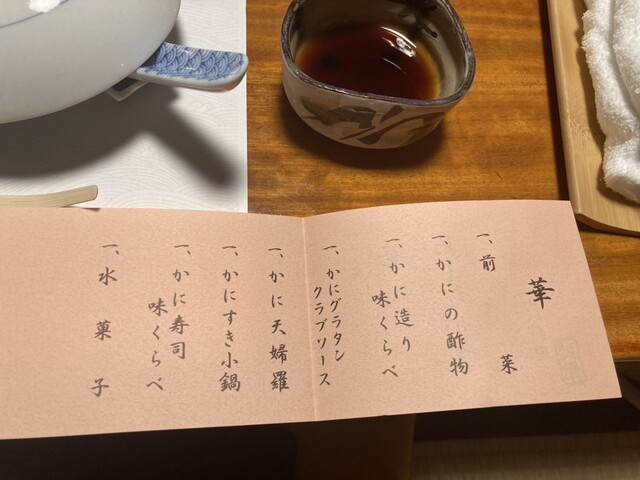 華
一、前菜
一、かにの酢物
一、かに造り
味くらべ
一、かにグラタン
クラブソース
一、かに天婦羅
一、かにすき小鍋
一、かに寿司
味くらべ
一、水菓子